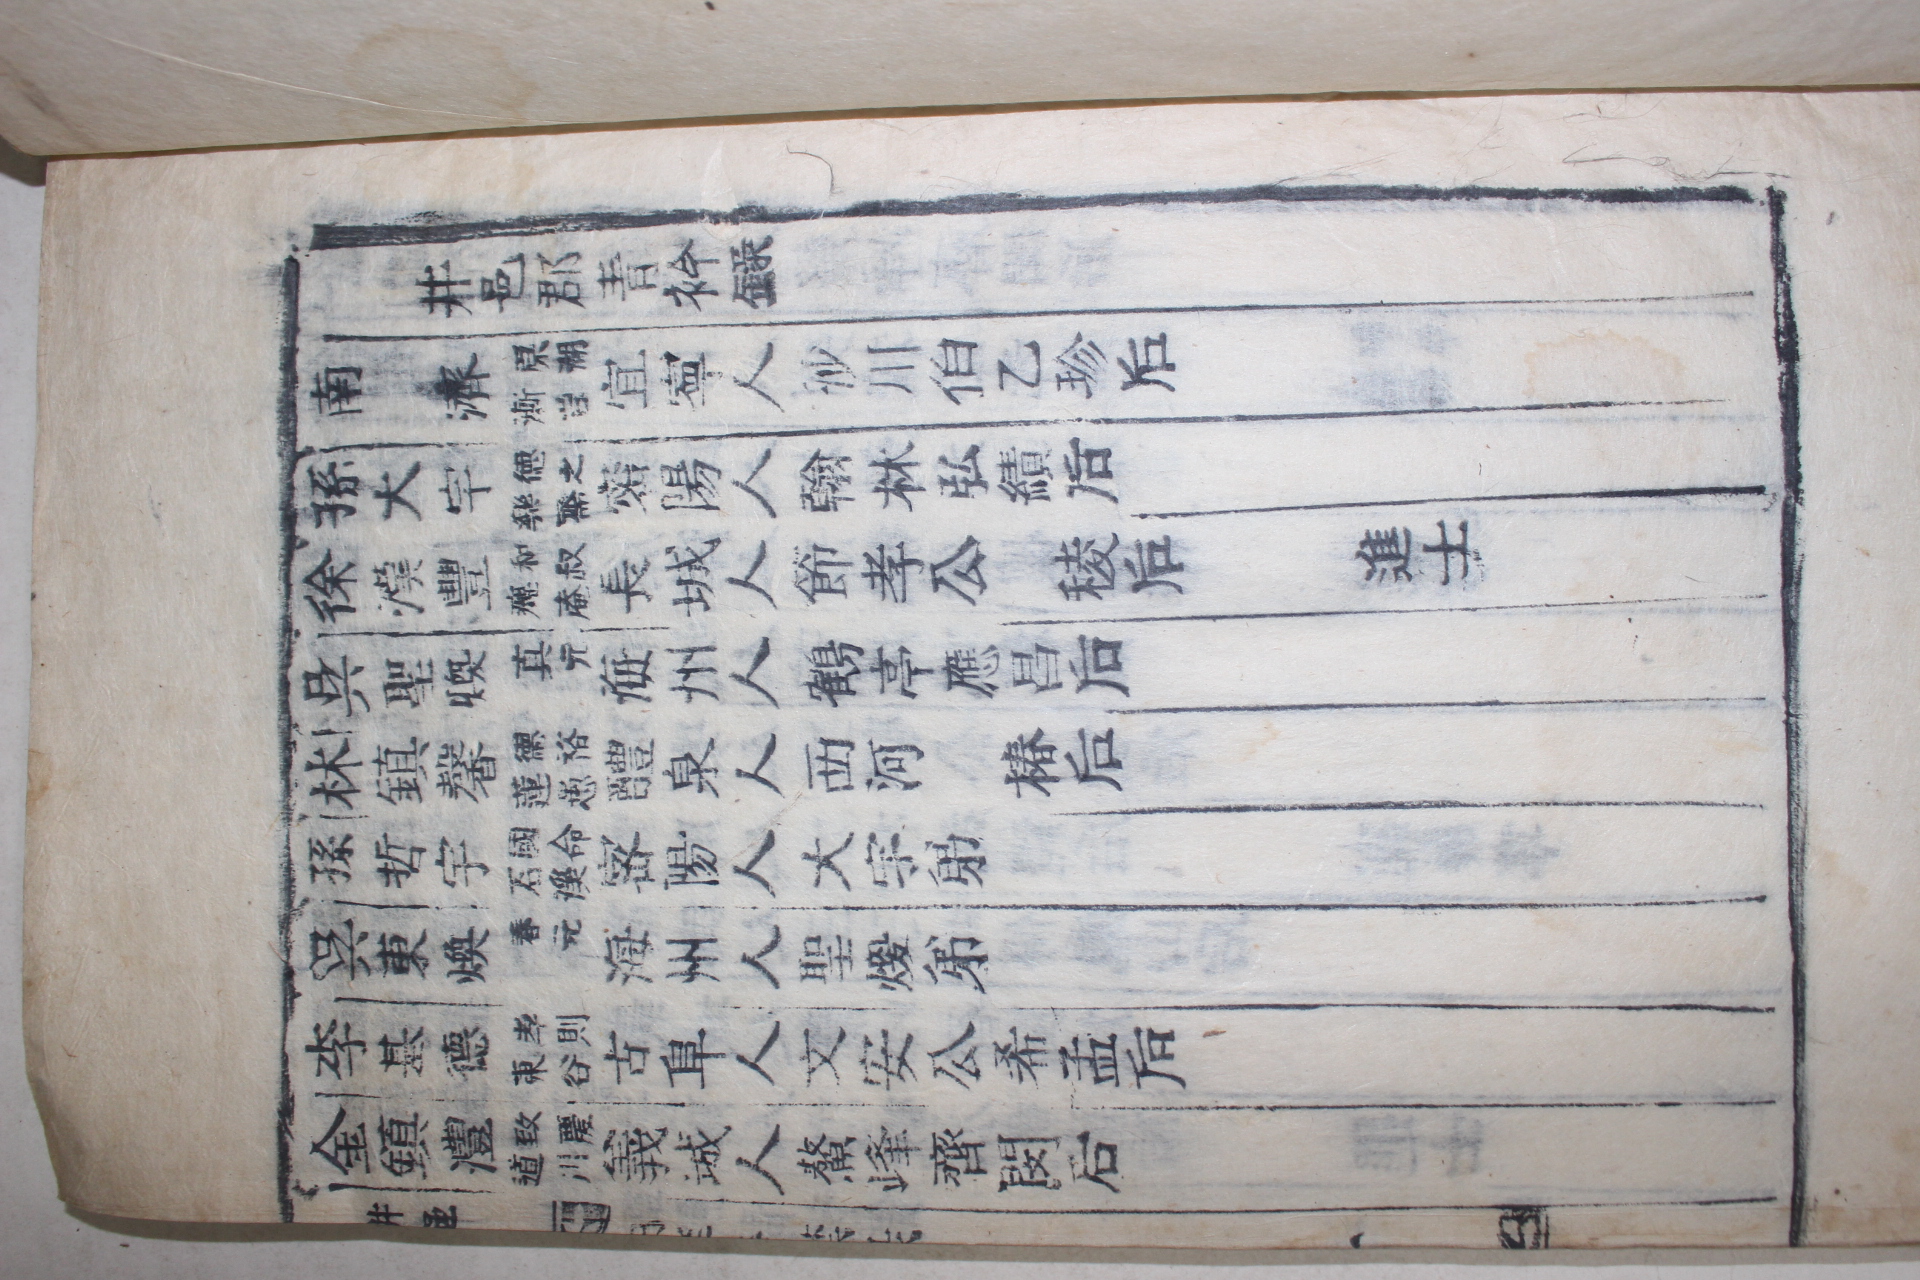 井邑郡青衿錄
南 濟 京湖 漸 宜寧人 沙川伯乙珍后
孫大宇 德之 樂齋 密陽人 翰林弘績后
徐漢豐 和叔 癡庵 長城人 節孝公 稜后 進士
吳聖煥 真元 海州人 鶴亭應昌后
林鎮馨 德裕 蓮愚 醴泉人 西河 椿后
孫哲宇 國命 石溪 密陽人 大宇弟
吳東煥 春元 海州人 聖煥弟
李基德 孝則 東谷 古阜人 文安公希孟后
金鎮澧 致慶 道川 義城人 鰲峰齊閔后
井邑